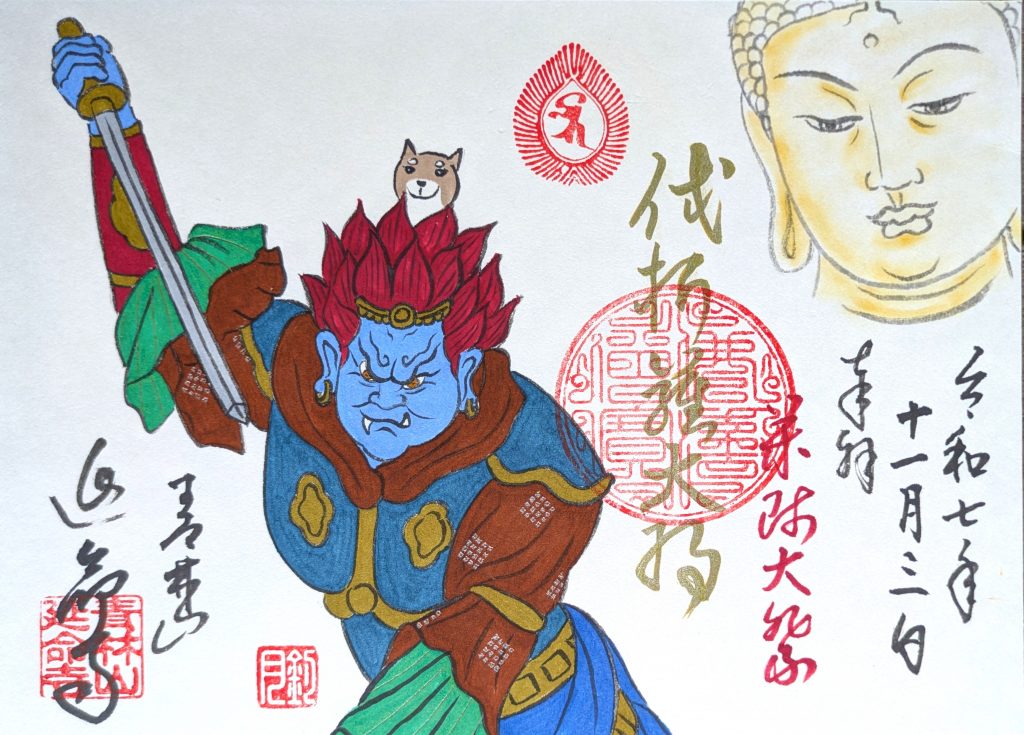 令和七年
十一月三日
奉拝
薬師大祭
伐折羅大将
青林山
延命寺
青林山
延命寺